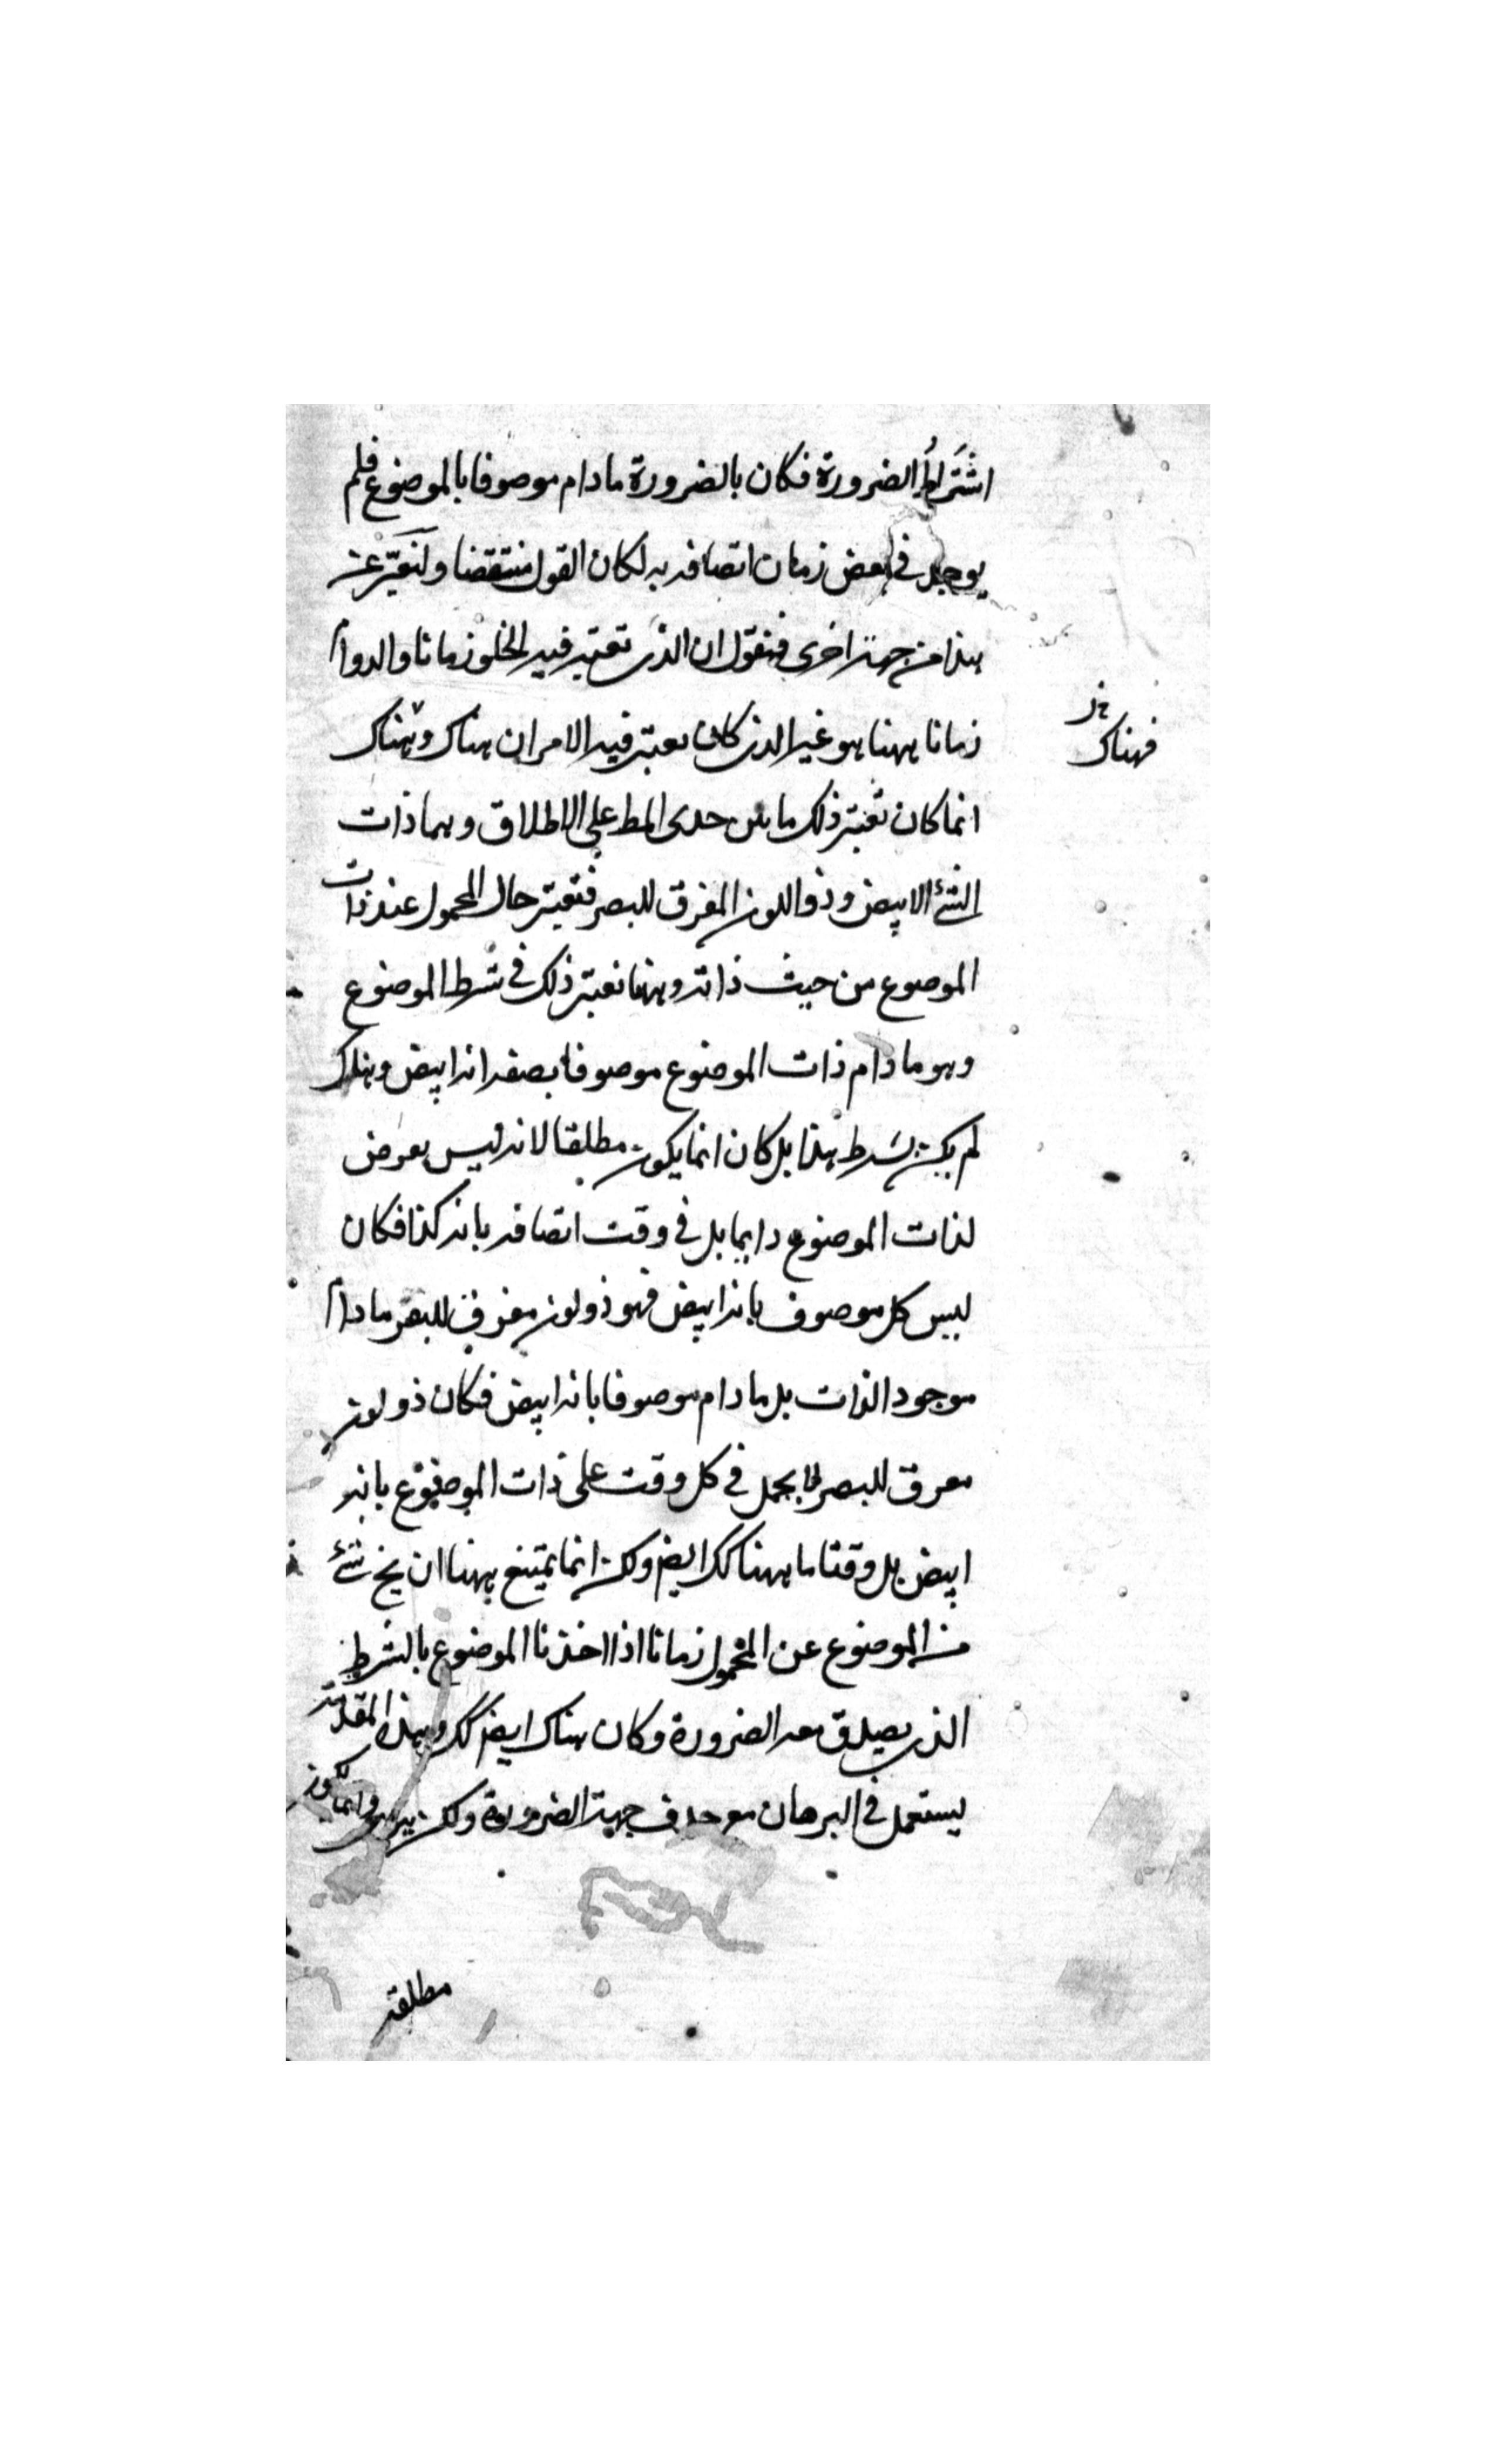 اشتراط الضرورة فكان بالضرورة مادام موصوفا بالموضوع فلم
يوجد في بعض زمان اتصافه به لكان القول منتقضا ولنعبر عن
هذا من جهة اخرى فنقول ان الذى تعتبر فيه الخلو زمانا والدوام
زمانا ههنا هو غير الذى كان يعتبر فيه الامران هناك وهناك
فهناك
انما كان تعتبر ذلك ما بين حدى المط على الاطلاق وهما ذات
الشئ الابيض وذو اللون المفرق للبصر فتعتبر حال المحمول عند ذات
الموضوع من حيث ذاته وههنا نعتبر ذلك في شرط الموضوع
وهو مادام ذات الموضوع موصوفا بصفة انه ابيض وهناك
لم يكن بشرط هذا بل كان انما يكون مطلقا لانه ليس يعرض
لذات الموضوع دايما بل في وقت اتصافه بانه كذا فكان
ليس كل موصوف بانه ابيض فهو ذو لون مفرق للبصر مادام
موجود الذات بل مادام موصوفا بانه ابيض فكان ذو لون
مفرق للبصر لا يحمل في كل وقت على ذات الموضوع بانه
ابيض بل وقتا ما ههنا كك ايض ولكن انما يمتنع ههنا ان يخ شئ
من الموضوع عن المحمول زمانا اذا اخذنا الموضوع بالشرط
الذى يصدق معه الضرورة وكان هناك ايض كك وهذه المقدمة
يستعمل في البرهان مع حذف جهة الضرورة ولكن وانما يكون
مطلقة